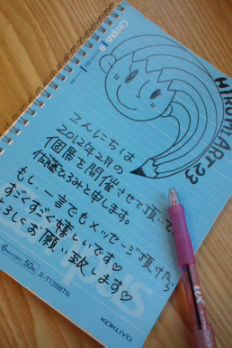 Campus
HIROMI ART 23
こんにちは
2012年2月の
個展を開催させて頂いてる
佐藤ひろみと申します。
もし、一言でもメッセージ頂けたら
すごくすごく嬉しいです♡
よろしくお願い致します♡
6mm ruled 50
ス-T135BTN
KOKUYO